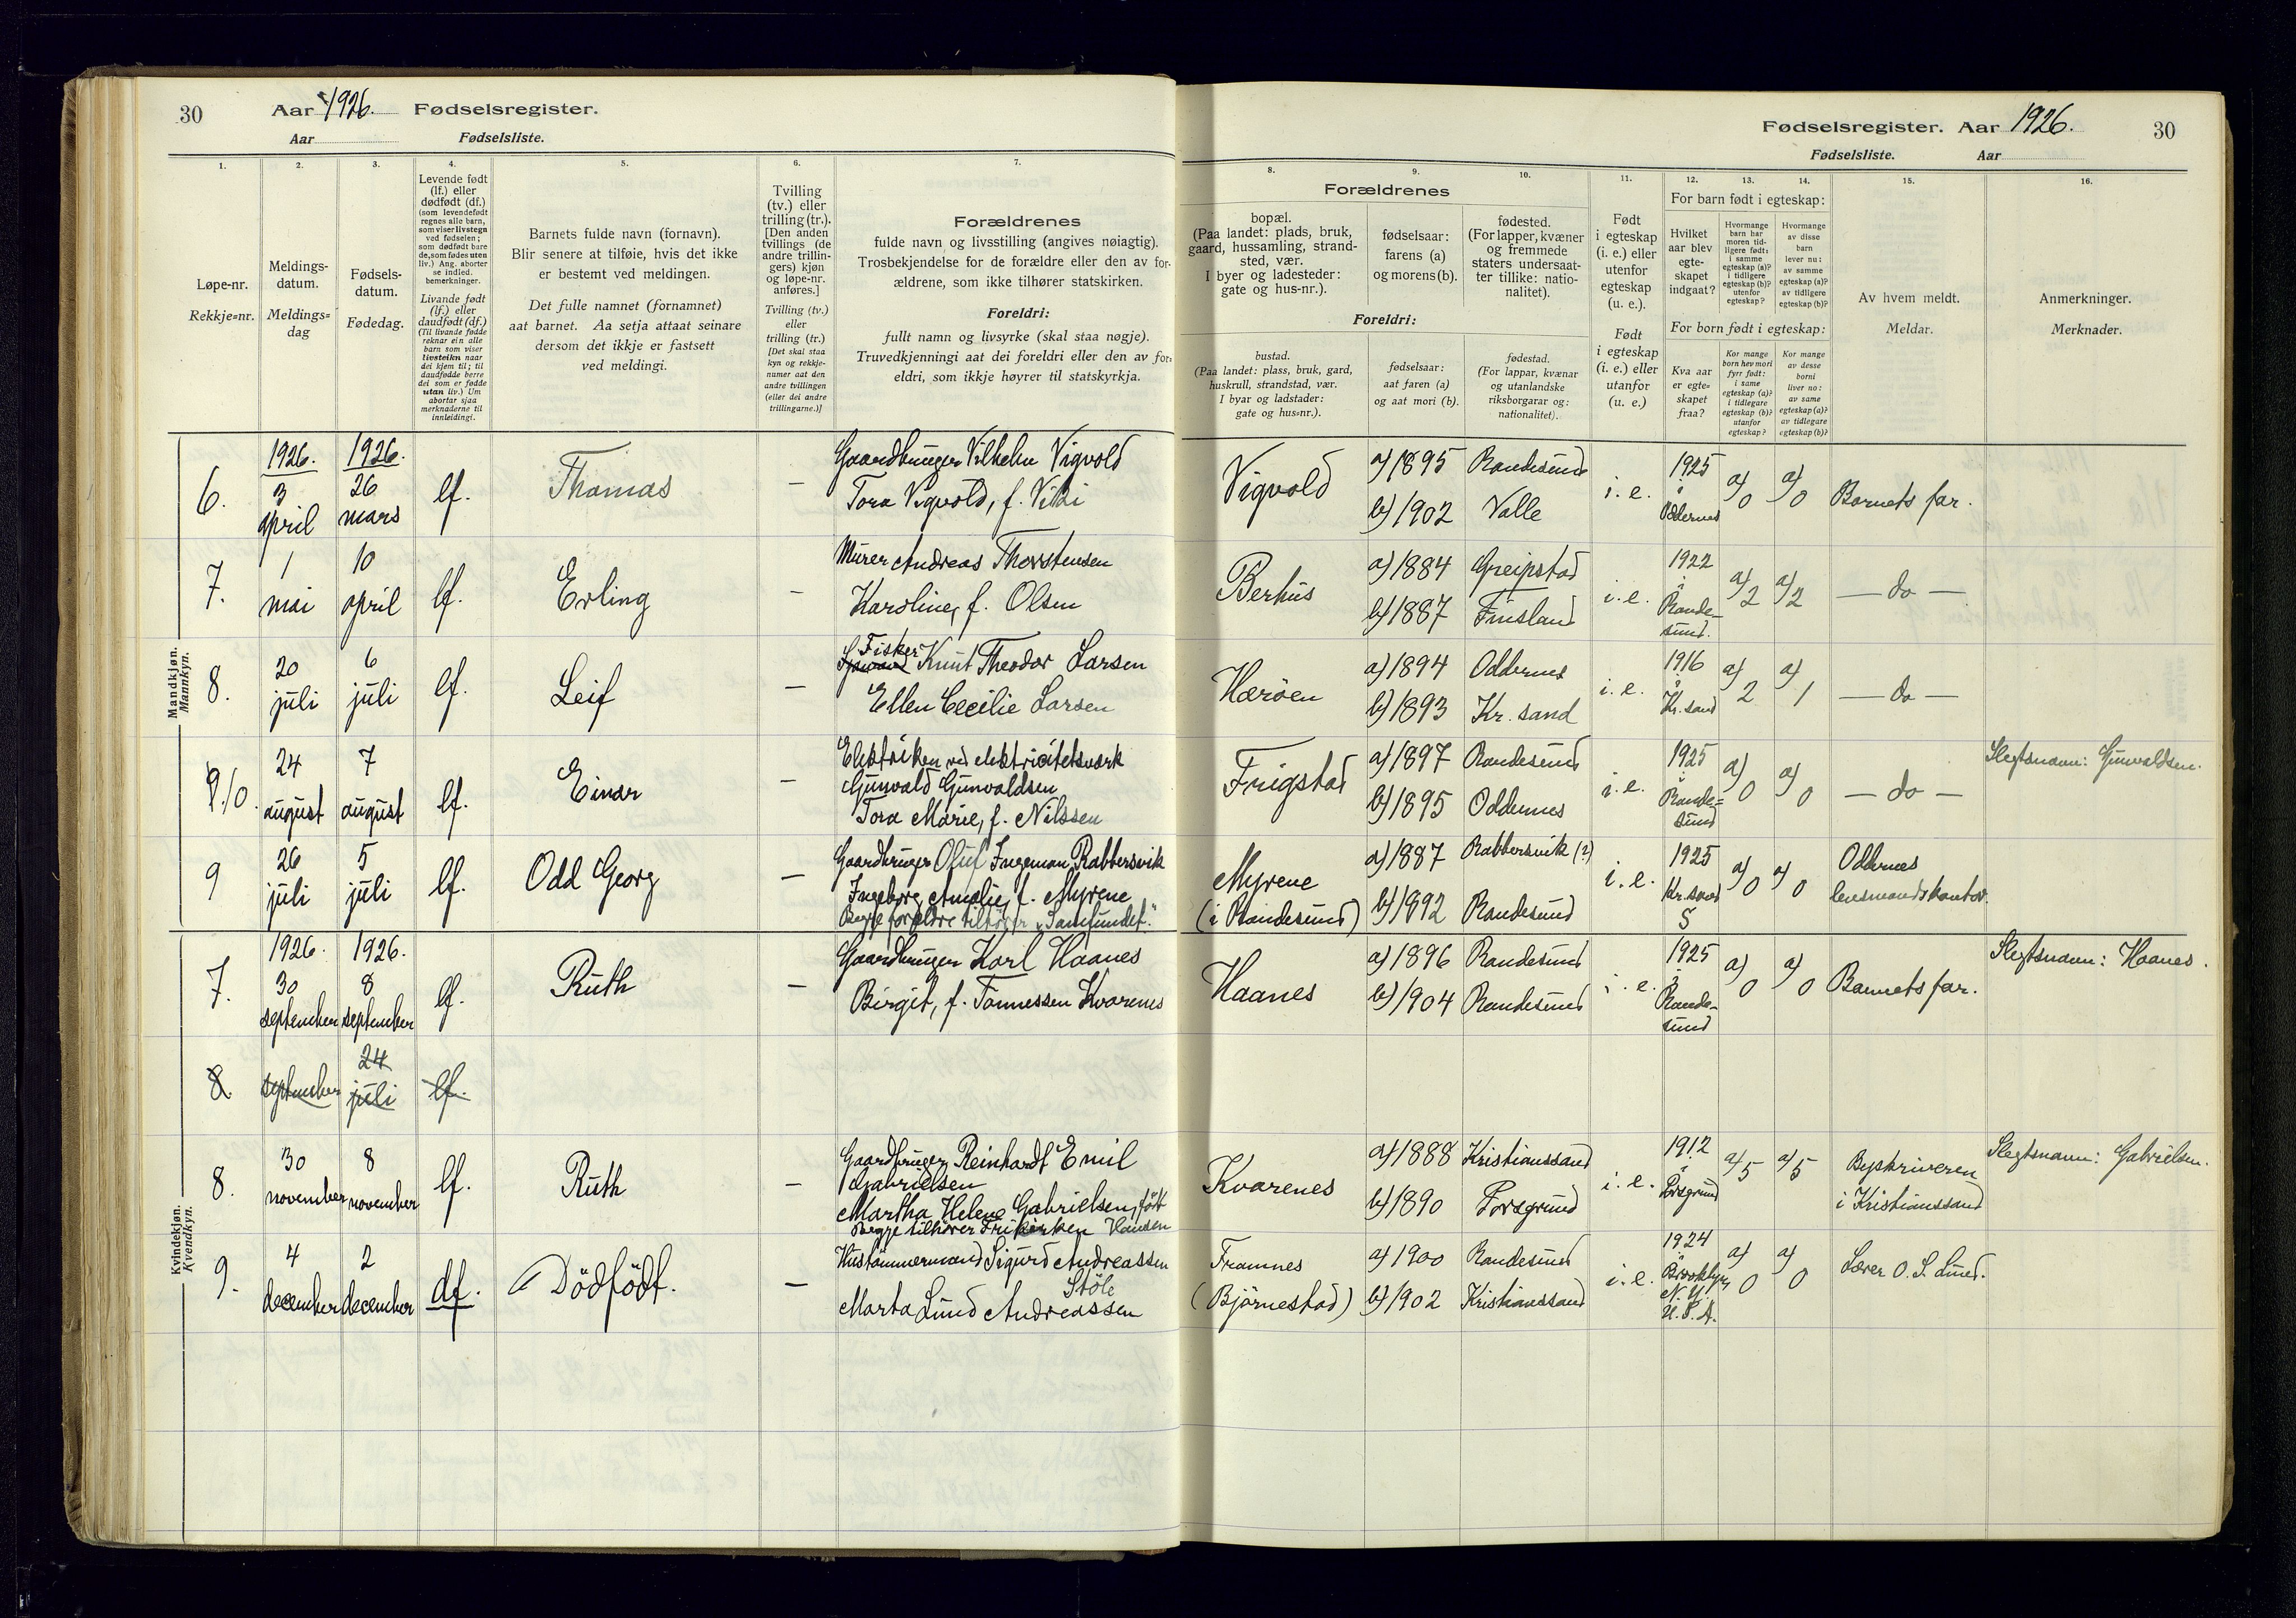 30 Aar 1926. Fødselsregister.
Aar Fødselsliste.
Fødselsregister. Aar 1926. 30
Fødselsliste. Aar
1. 2. 3. 4. 5. 6. 7.
Løpe-nr.
Rekkje=nr.
Meldings-
datum.
Meldings=
dag
Fødsels-
datum.
Fødedag.
Levende født
(lf.) eller
dødfødt (df.)
(som levendefødt
regnes alle barn,
som viser livstegn
ved fødselen;
som dødfødt bare
de, som fødes uten
liv.) Ang. aborter
se indled.
bemerkninger.
Livande født
(lf.) eller
daudfødt (df.)
(Til livande fødde
reknar ein alle
barn som viser
livsteikn naar
dei kjem til; til
daudfødde berre
dei som er fødde
utan liv.) Um
abortar sjaa
merknaderne til
innleidingi.
Barnets fulde navn (fornavn).
Blir senere at tilføie, hvis det ikke
er bestemt ved meldingen.
Det fulle namnet (fornamnet)
aat barnet. Aa setja attaat seinare
dersom det ikkje er fastsett
ved meldingi.
Tvilling
(tv.) eller
trilling (tr.).
[Den anden
tvillings (de
andre trillin-
gers) kjøn
og løpe-nr.
anføres.]
Tvilling (tv.)
eller
trilling (tr.)
[Det skal staa
kyn og rekkje-
numer aat den
andre tvillingen
(eller dei andre
trillingarne.)]
Forældrenes
fulde navn og livsstilling (angives nøiagtig).
Trosbekjendelse for de forældre eller den av for-
ældrene, som ikke tilhører statskirken.
Foreldri:
fullt namn og livsyrke (skal staa nøgje).
Truvedkjenningi aat dei foreldri eller den av for-
eldri, som ikkje høyrer til statskyrkja.
8. 9. 10. 11. 12. 13. 14. 15. 16.
Forældrenes
bopæl.
(Paa landet: plads, bruk,
gaard, hussamling, strand-
sted, vær.
I byer og ladesteder:
gate og hus-nr.).
fødselsaar:
farens (a)
og morens (b).
fødested.
(For lapper, kvæner
og fremmede
staters undersaat-
ter tillike: natio-
nalitet).
Foreldri:
bustad.
(Paa landet: plass, bruk, gard,
huskrull, strandstad, vær.
I byar og ladstader:
gate og hus=nr.).
fødselsaar:
aat faren (a)
og aat mori (b).
fødestad.
(For lappar, kvænar
og utanlandske
riksborgarar og:
nationalitet).
Født
i egteskap
(i. e.) eller
utenfor
egteskap
(u. e.).
Født
i egteskap
(i. e.) eller
utanfor
(u. e.)
For barn født i egteskap:
Hvilket
aar blev
egte-
skapet
indgaat?
Hvormange
barn har
moren tid-
ligere født:
i samme
egteskap (a)?
i tidligere
egteskap (b)?
utenfor
egteskap?
Hvormange
av disse
barn
lever nu:
av samme
egteskap (a)?
av tidligere
egteskap (b)?
For born født i egteskap:
Kva aar
er egte=
skapet
fraa?
Kor mange
born hev mori
fyrr født:
i same
egteskap (a)?
i tidlegare
egteskap (b)?
utanfor
egteskap?
Kor mange
av desse
borni
liver no:
av same
egteskap (a)?
av tidlegare
egteskap (b)?
Av hvem meldt.
Meldar.
Anmerkninger.
Merknader.
Mandkjøn.
Mannkyn.
6. 1926. 3 april 1926. 26 mars lf. Thomas —
Gaardbruger Vilhelm Vigvold
Tora Vigvold, f.
Vigvold a) 1895 Randesund i. e. 1925 i Oddernes a) 0 a) 0 Barnets far.
b) 1902 Valle
7. 1 mai 10 april lf. Erling —
Murer Andreas Thorstensen
Karoline, f. Olsen
Berhus a) 1884 Greipstad i. e. 1922 i Rande-
sund. a) 2 a) 2 — do —
b) 1887 Finsland
8. 20 juli 6 juli lf. Leif —
Fisker
Knut Theodor Larsen
Ellen Cecilie Larsen
Herøen a) 1894 Oddernes i. e. 1916 i Kr. sand a) 2 a) 1 — do —
b) 1893 Kr. sand
9. 10. 24 august 7 august lf. Einar —
Elektriken ved elektricitetsverk
Gunvald Gunvaldsen
Tora Marie, f. Nilssen
Frigstad a) 1897 Randesund i. e. 1925 i Rande=
sund a) 0 a) 0 — do — Slegtsnavn: Gunvaldsen.
b) 1895 Oddernes
9 26 juli 5 juli lf. Odd Georg —
Gaardbruger Oluf Ingeman Rabbersvik
Ingeborg Amalie, f. Myrene
Begge forældre tilhører "Samfundet."
Myrene
(i Randesund) a) 1887 Rabbersvik (?) i. e. 1925 Kr. sand S a) 0 a) 0 Oddernes
lensmandskontor.
b) 1892 Randesund
Kvindekjøn.
Kvendkyn.
7. 1926. 30 september 1926. 8 september lf. Ruth —
Gaardbruger Karl Haanes
Birgit, f. Tønnessen Kvarenes
Haanes a) 1896 Randesund i. e. 1925 i Rande-
sund a) 0 a) 0 Barnets far. Slegtsnavn: Haanes.
b) 1904 Randesund
8. september 24 juli lf.
8. 30 november 8 november lf. Ruth —
Gaardbruger Reinhardt Emil
Gabrielsen
Martha Helene Gabrielsen, født
Begge tilhører Frikirken Hansen
Kvarenes a) 1888 Kristianssand i. e. 1912 i Porsgrund a) 5 a) 5 Byskriveren
i Kristianssand Slegtsnavn: Gabrielsen.
b) 1890 Porsgrund
9. 4 december 2 december df. Dödfödt. —
Hustømmermand Sigurd Andreassen
Støle
Marta Lund Andreassen
Framnes
(Björnestad) a) 1900 Randesund i. e. 1924 Brooklyn, N. Y. U. S. A. a) 0 a) 0 Lærer O. S. Lund.
b) 1902 Kristianssand